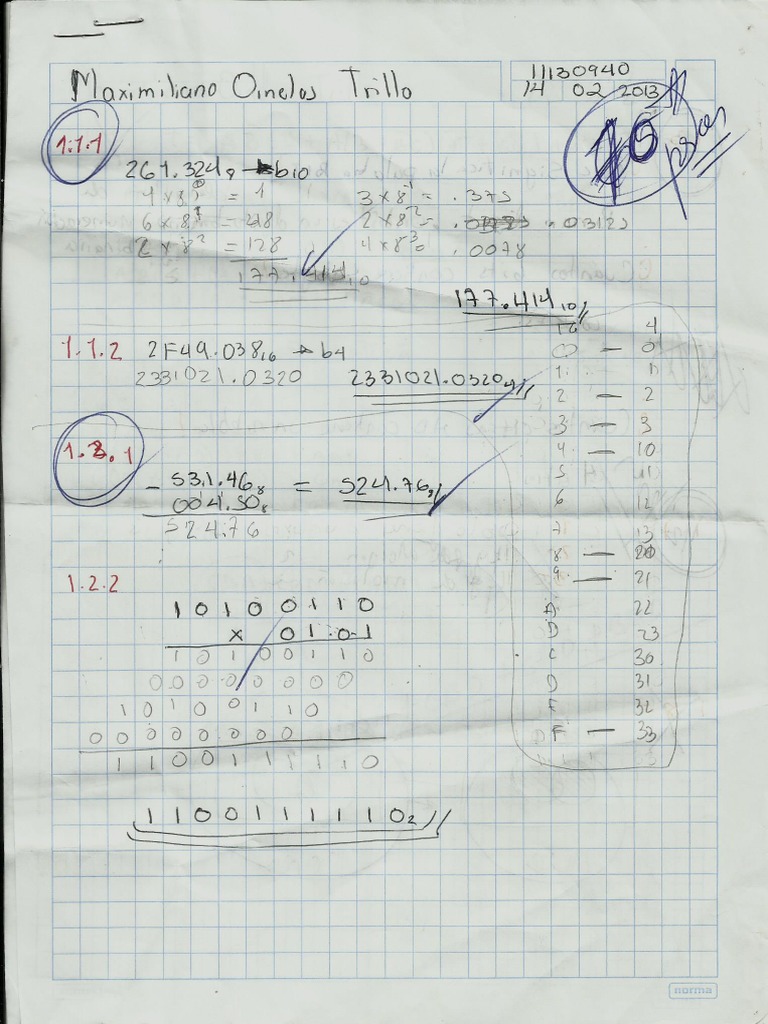 Maximiliano Oinelas Trillo
11130940
14 02 2013
1.1.1
261.324₈ → b10
4 x 8⁰ = 1 3 x 8⁻¹ = .375
6 x 8¹ = 48 2 x 8⁻² = .03125
2 x 8² = 128 4 x 8⁻³ .0078
177.414₁₀
177.414₁₀
1.1.2 2F49.038₁₆ → b4
2331021.0320 2331021.0320₄
16 4
0 — 0
1 1
2 — 2
3 — 3
4 — 10
5 11
6 12
7 13
8 — 20
9 — 21
A 22
D 23
C 30
D 31
F 32
F — 33
1.2.1
- 531.46₈ = 524.76₈
004.50₈
524.76
1.2.2
10100110
x 0101
10100110
00000000
10100110
00000000
1100111110
1100111110₂
norma